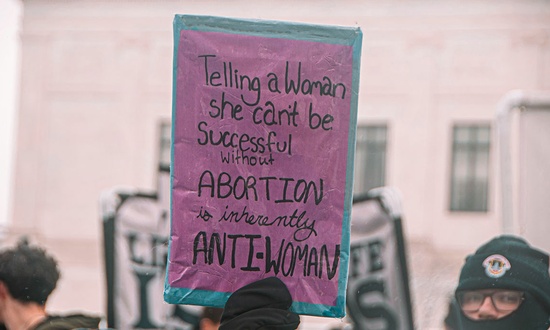 Telling a Woman
she can't be
Successful
without
ABORTION
is inherently
ANTI-WOMAN
FE
IS